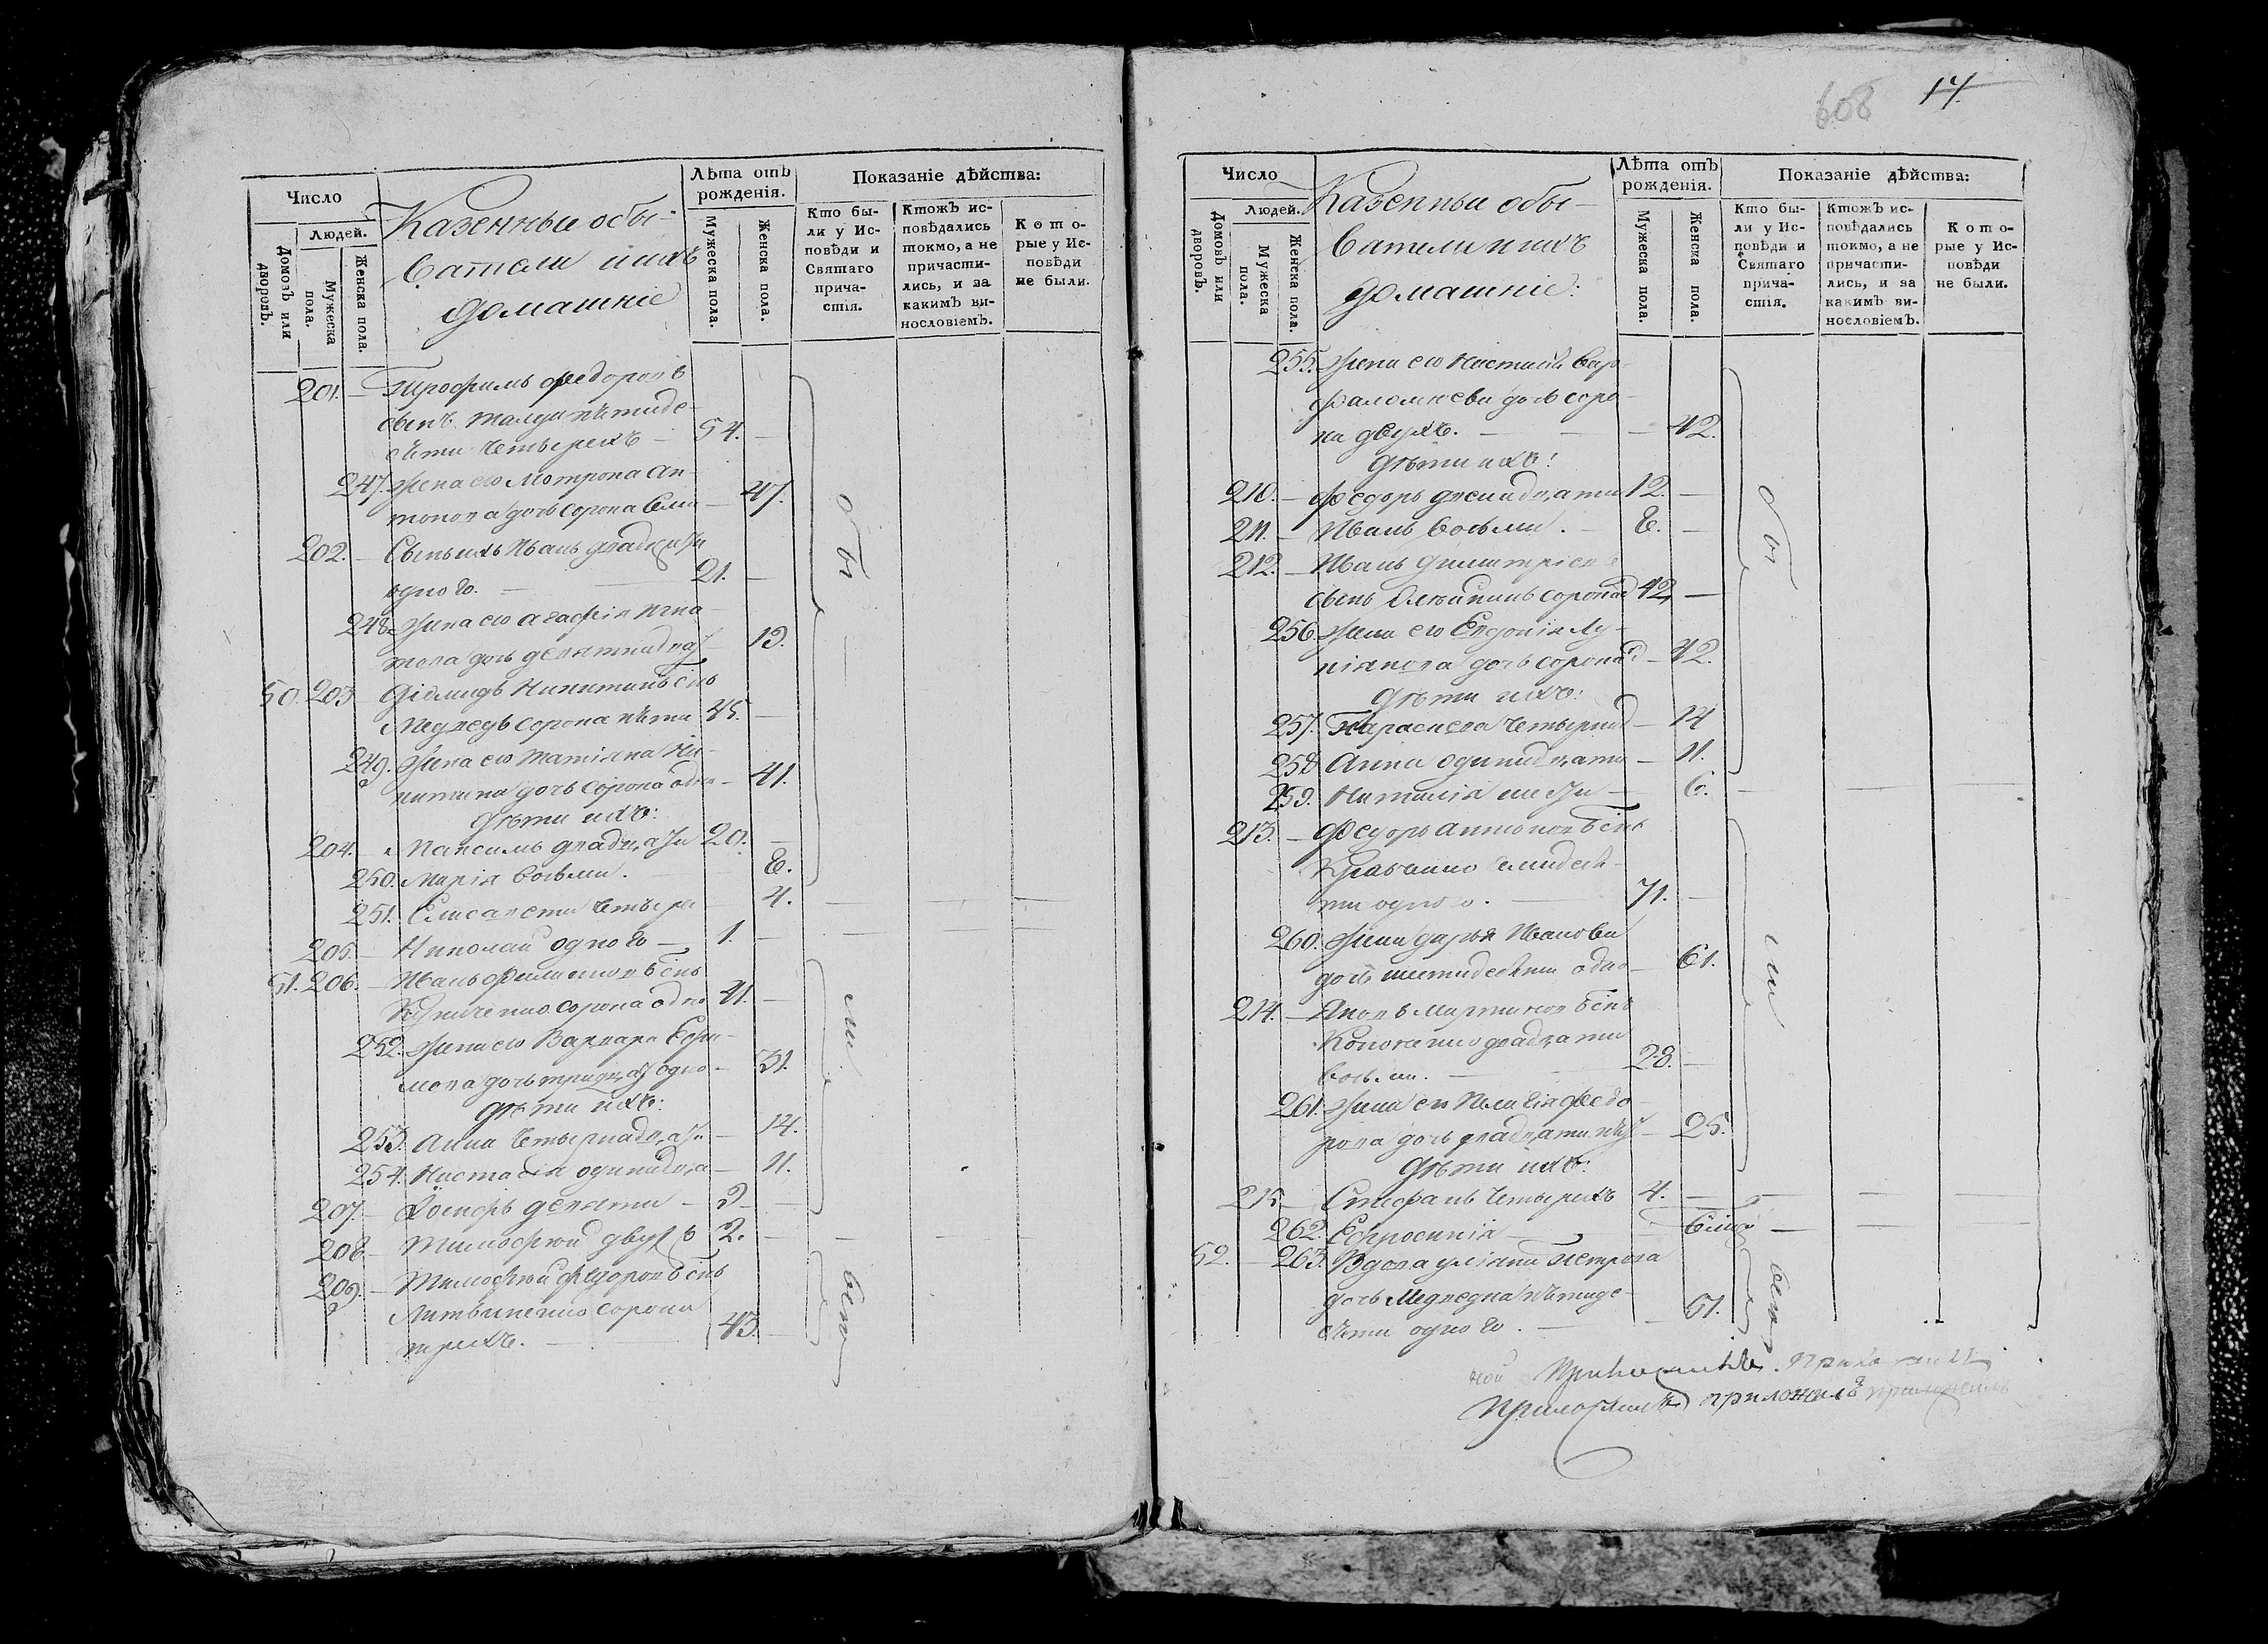 Число
Людей.
Домовъ или дворовъ.
Мужеска пола.
Женска пола.
Казенныи обы-
ватели и ихъ
домашніе
Лѣта отъ рожденія.
Мужеска пола.
Женска пола.
Показаніе дѣйства:
Кто бы-
ли у Ис-
повѣди и
Святаго
прича-
стія.
Ктожъ ис-
повѣдались
токмо, а не
причасти-
лись, и за
какимъ ви-
нословіемъ.
Кото-
рые у Ис-
повѣди
не были.
201. Трофимъ Федоровъ
сынъ пятиде-
сяти четырехъ 54.
247. Жена его Мотрона Ан-
тонова дочь сорока семи 47.
202. Сынъ ихъ Иванъ двадцати
одного. 21.
248. Жена его Агафія Игна-
това дочь девятнадцат 19.
50. 203 Никитинъ снъ
Медведь сорока пяти 45.
249. Жена его Татіяна Ни-
китина дочь сорока одно 41.
Дѣти ихъ:
204. Максимъ двадцати 20.
250. Марія восьми. 8.
251. Елисавета четыре 4.
205. Николай одного 1.
51. 206. Иванъ Филиповъ снъ
сорока одно 41.
252. Жена его Варвара Ефи-
мова дочь тридцат одно 31.
Дѣти ихъ:
253. Анна четырнадцати 14.
254. Настасія одинадца 11.
207. девяти 9
208. Тимофей двухъ 2.
209. Тимофей Федоровъ снъ
Литвиненко сорока
трехъ. 43.
бы
ли
вси
608
14
Число
Людей.
Домовъ или дворовъ.
Мужеска пола.
Женска пола.
Казенныи обы-
ватели и ихъ
домашніе:
Лѣта отъ рожденія.
Мужеска пола.
Женска пола.
Показаніе дѣйства:
Кто бы-
ли у Ис-
повѣди и
Святаго
прича-
стія.
Ктожъ ис-
повѣдались
токмо, а не
причасти-
лись, и за
какимъ ви-
нословіемъ.
Кото-
рые у Ис-
повѣди
не были.
255. Жена его Настасія Вар-
фаломеева дочь соро-
ка двухъ. 42.
Дѣти ихъ:
210. Федоръ двенадцати 12.
211. Иванъ восьми. 8.
212. Иванъ Димитріевъ
сынъ сорока д 42,
256. Жена его Евдокія Лу-
кіянова дочь сорока д 42.
Дѣти ихъ:
257. Параскева четырнад 14
258 Анна одинадцати 11.
259. Наталія шести 6.
213. Федоръ Антоновъ снъ
Кравченко семидеся-
ти одного. 71.
260. Жена Дарья Иванова
дочь шестидесяти одно 61.
214. Яковъ Мартиновъ снъ
Кононенко двадцати
восьми. 28.
261. Жена его Пелагія Федо-
рова дочь двадцати пят 25.
Дѣти ихъ:
215 Стефанъ четырехъ 4.
262. Ефросинія
52. 263. Вдова Уліяна Петрова
дочь Медведка пятиде-
сяти одного. 51.
бы
ли
приложилъ